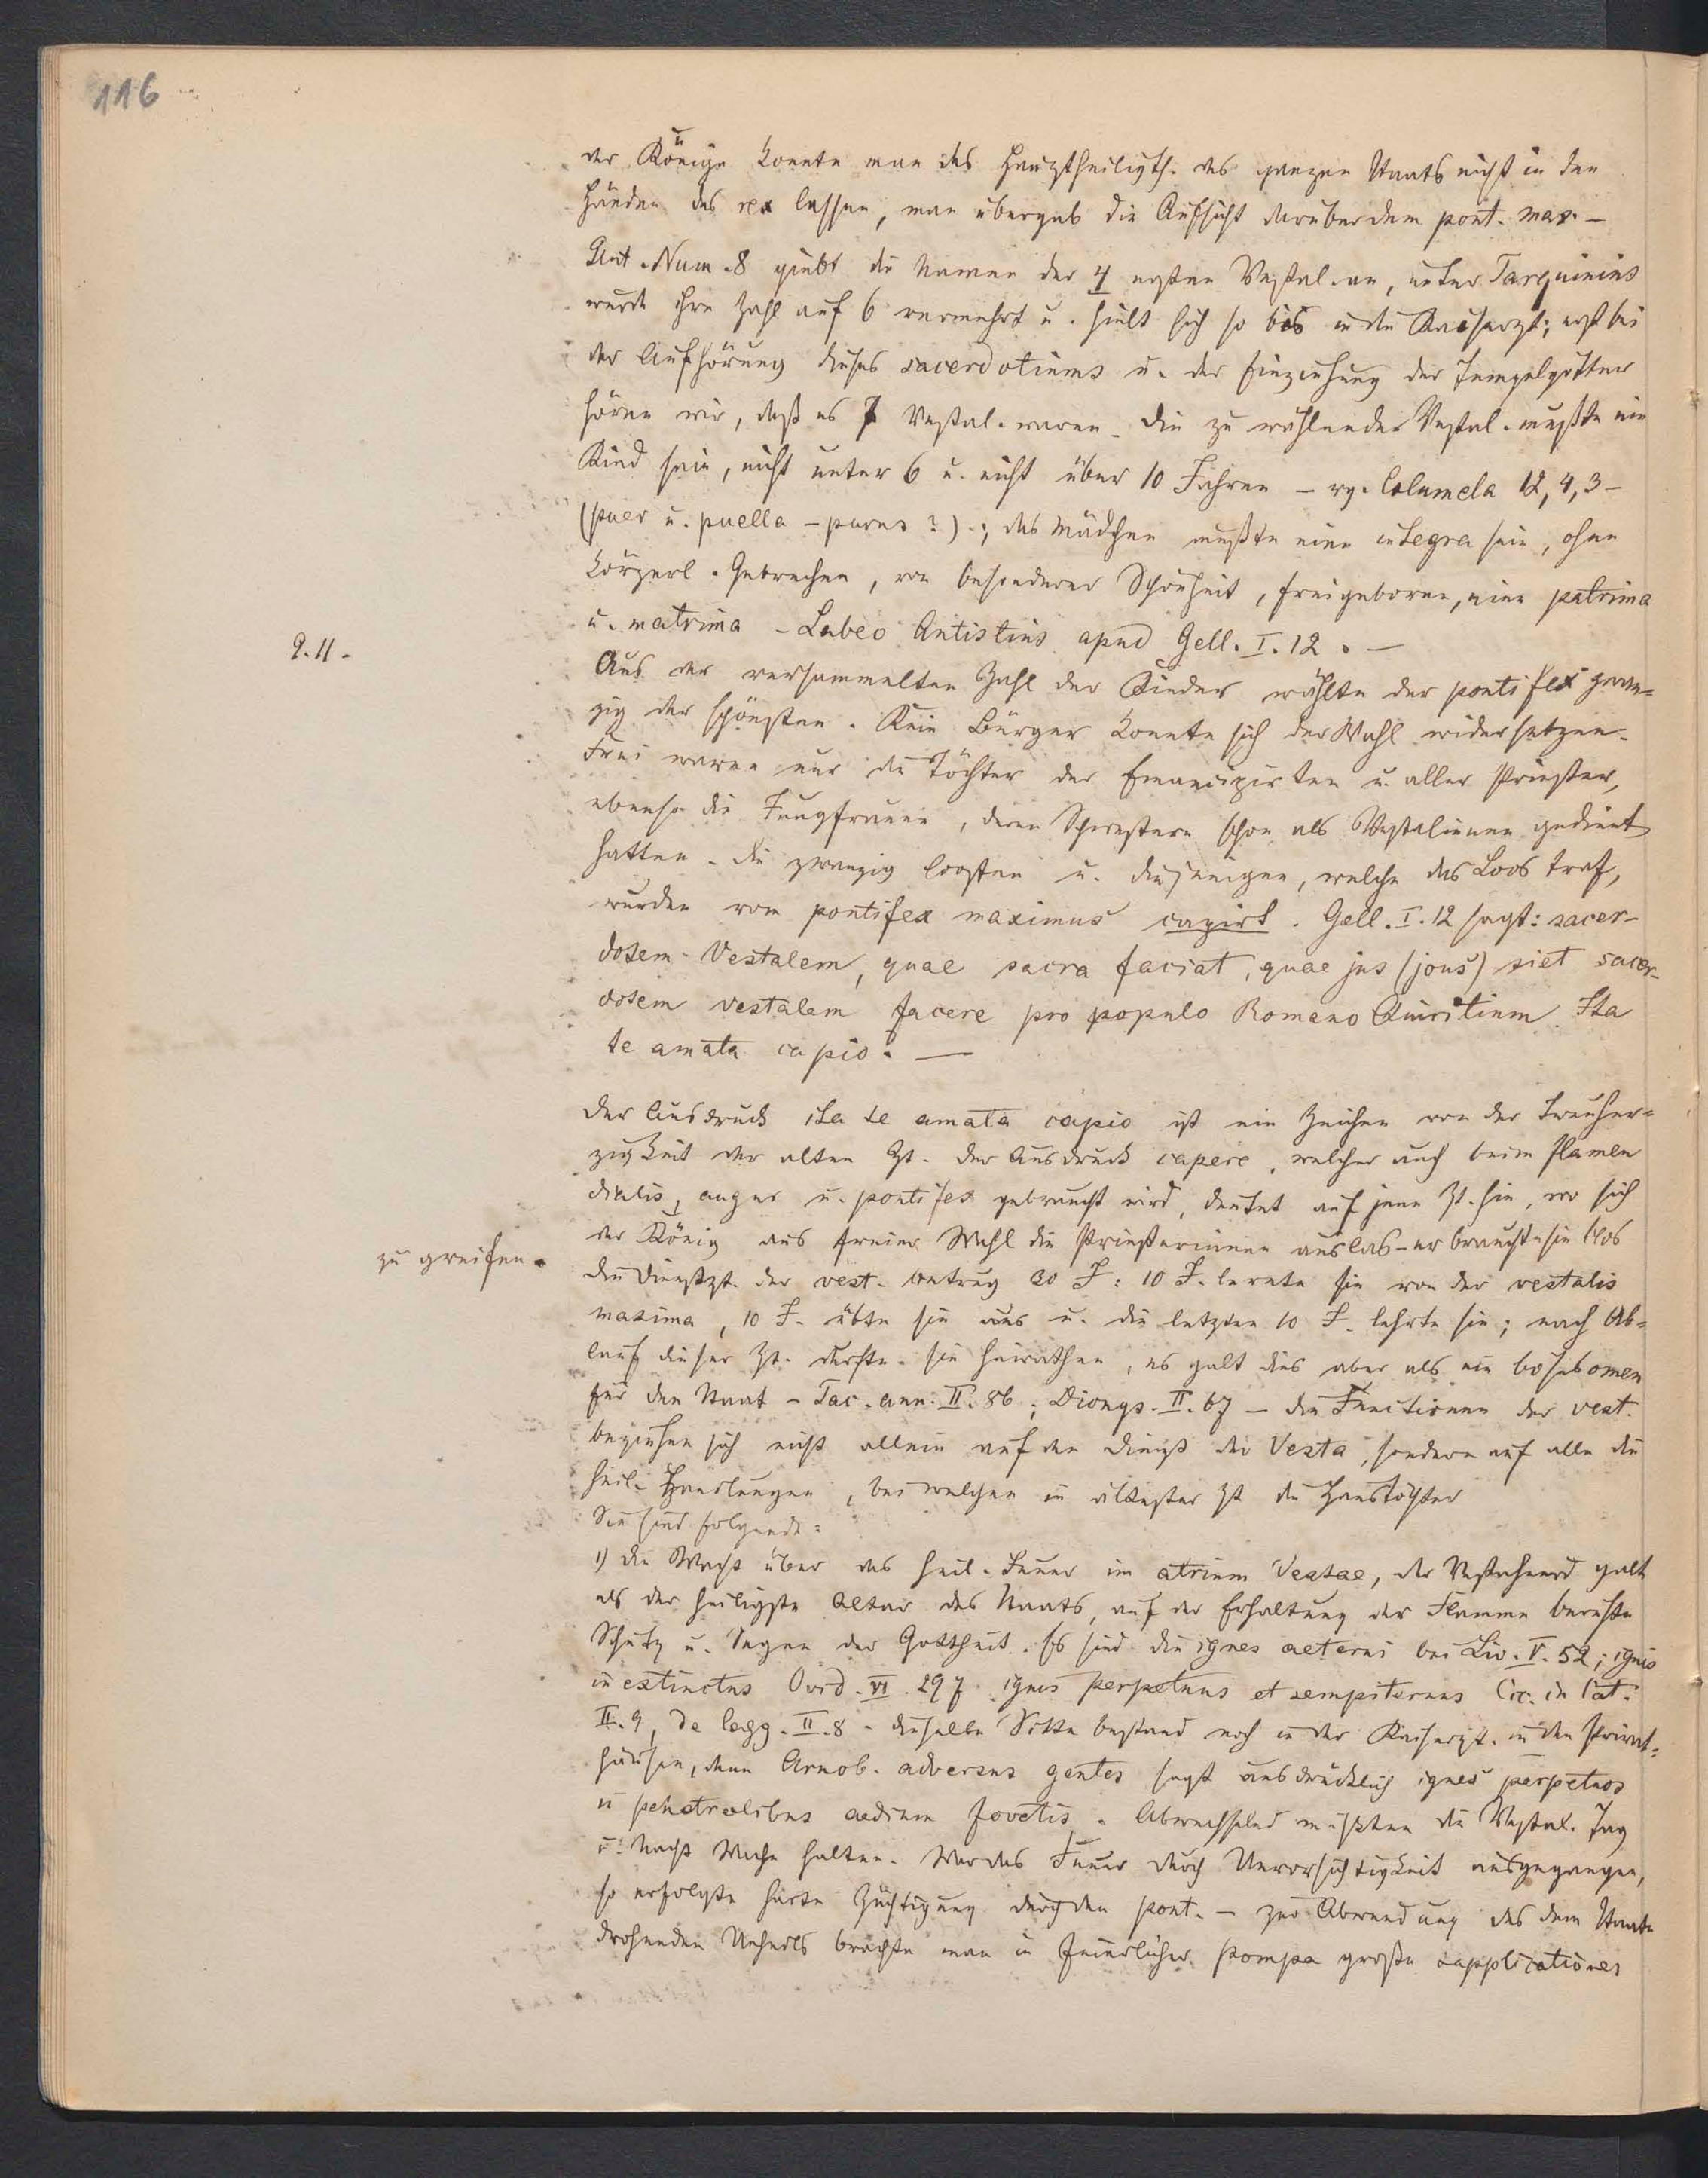 116
der Könige konnte man das Hauptheiligth. des ganzen Staats nicht in den
Händen des rex lassen, man übergab die Aufsicht darüber dem pont. max. –
Plut. Num. 8 giebt die Namen der 4 ersten Vestal. an, unter Tarquinius
wurde ihre Zahl auf 6 vermehrt u. hielt sich so bis in die Kaiserzt; erst bei
der Aufhörung dieses sacerdotiums u. der Einziehung der Tempelgütter
hören wir, daß es 7 Vestal. waren. Die zu wählende Vestal. mußte ein
Kind sein, nicht unter 6 u. nicht über 10 Jahren – vg. Columela 12, 4, 3 –
(puer u. puella – purus?).; das Mädchen mußte eine integra sein, ohne
körperl. Gebrechen, von besonderer Schönheit, freigeboren, eine patrima
u. matrima – Labeo Antistius apud Gell. I. 12. –
9. 11.
Aus der versammelten Zahl der Kinder wählte der pontifex zwan=
zig der schönsten. Kein Bürger konnte sich der Wahl widersetzen.
Frei waren nur die Töchter der Emancipirten u. aller Priester,
ebenso die Jungfrauen, deren Schwestern schon als Vestalinnen gedient
hatten. Die zwanzig loosten u. diejenigen, welche das Loos traf,
wurden vom pontifex maximus capirt. Gell. I. 12 sagt: sacer-
dotem Vestalem, quae sacra faciat, quae jus (jous) siet sacer-
dotem vestalem facere pro populo Romano Quiritium. Ita
te amata capio. —
Der Ausdruck ita te amata capio ist ein Zeichen von der Treuher=
zigkeit der alten Zt. Der Ausdruck capere, welcher auch beim flamen
dialis, augur u. pontifex gebraucht wird, deutet auf jene Zt. hin, wo sich
der König aus freier Wahl die Priesterinnen auslas – er brauchte sie blos
zu greifen.
Die Dienstzt. der vest. betrug 30 J: 10 J. lernte sie von der vestalis
maxima, 10 J. übte sie aus u. die letzten 10 J. lehrte sie; nach Ab=
lauf dieser Zt. durfte sie heirathen, es galt dies aber als ein böses omen
für den Staat – Tac. ann. II. 86; Dionys. II. 67 – die Functionen der vest.
beziehen sich nicht allein auf den Dienst der Vesta, sondern auf alle die
heil. Handlungen, bei welchen in ältester Zt die Haustöchter
Sie sind folgende:
1) die Wacht über das heil. Feuer im atrium Vestae, der Vestaheerd galt
als der heiligste Altar des Staats, auf der Erhaltung der Flamme beruhte
Schutz u. Segen der Gottheit. Es sind die ignes aeterni bei Liv. V. 52; ignis
inextinctus Ovid. VI. 297. ignis perpetuus et sempiternus Cic. in Cat.
II. 9, de legg. II. 8. Dieselbe Sitte bestand noch in der Kaiserzt. in den Privat=
häusern, denn Arnob. adversus gentes sagt ausdrücklich ignes perpetuos
in penetralibus aedium fovetis. Abwechselnd mußten die Vestal. Tag
u. Nacht Wache halten. War das Feuer durch Unvorsichtigkeit ausgegangen,
so erfolgte harte Züchtigung durch den pont. – zur Abwendung des dem Staate
drohenden Unheils brachte man in feierlicher Pompa große supplicationes